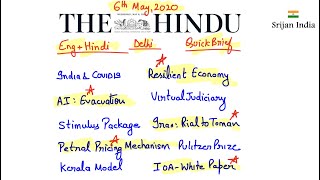 6th May, 2020
THE HINDU
Srijan India
Eng + Hindi Delhi Quick Brief
India & COVID19 Resilient Economy
AI: Evacuation Virtual Judiciary
Stimulus Package Iran: Rial to Toman
Petrol Pricing Mechanism Pulitzer Prize
Kerala Model IOA-White Paper